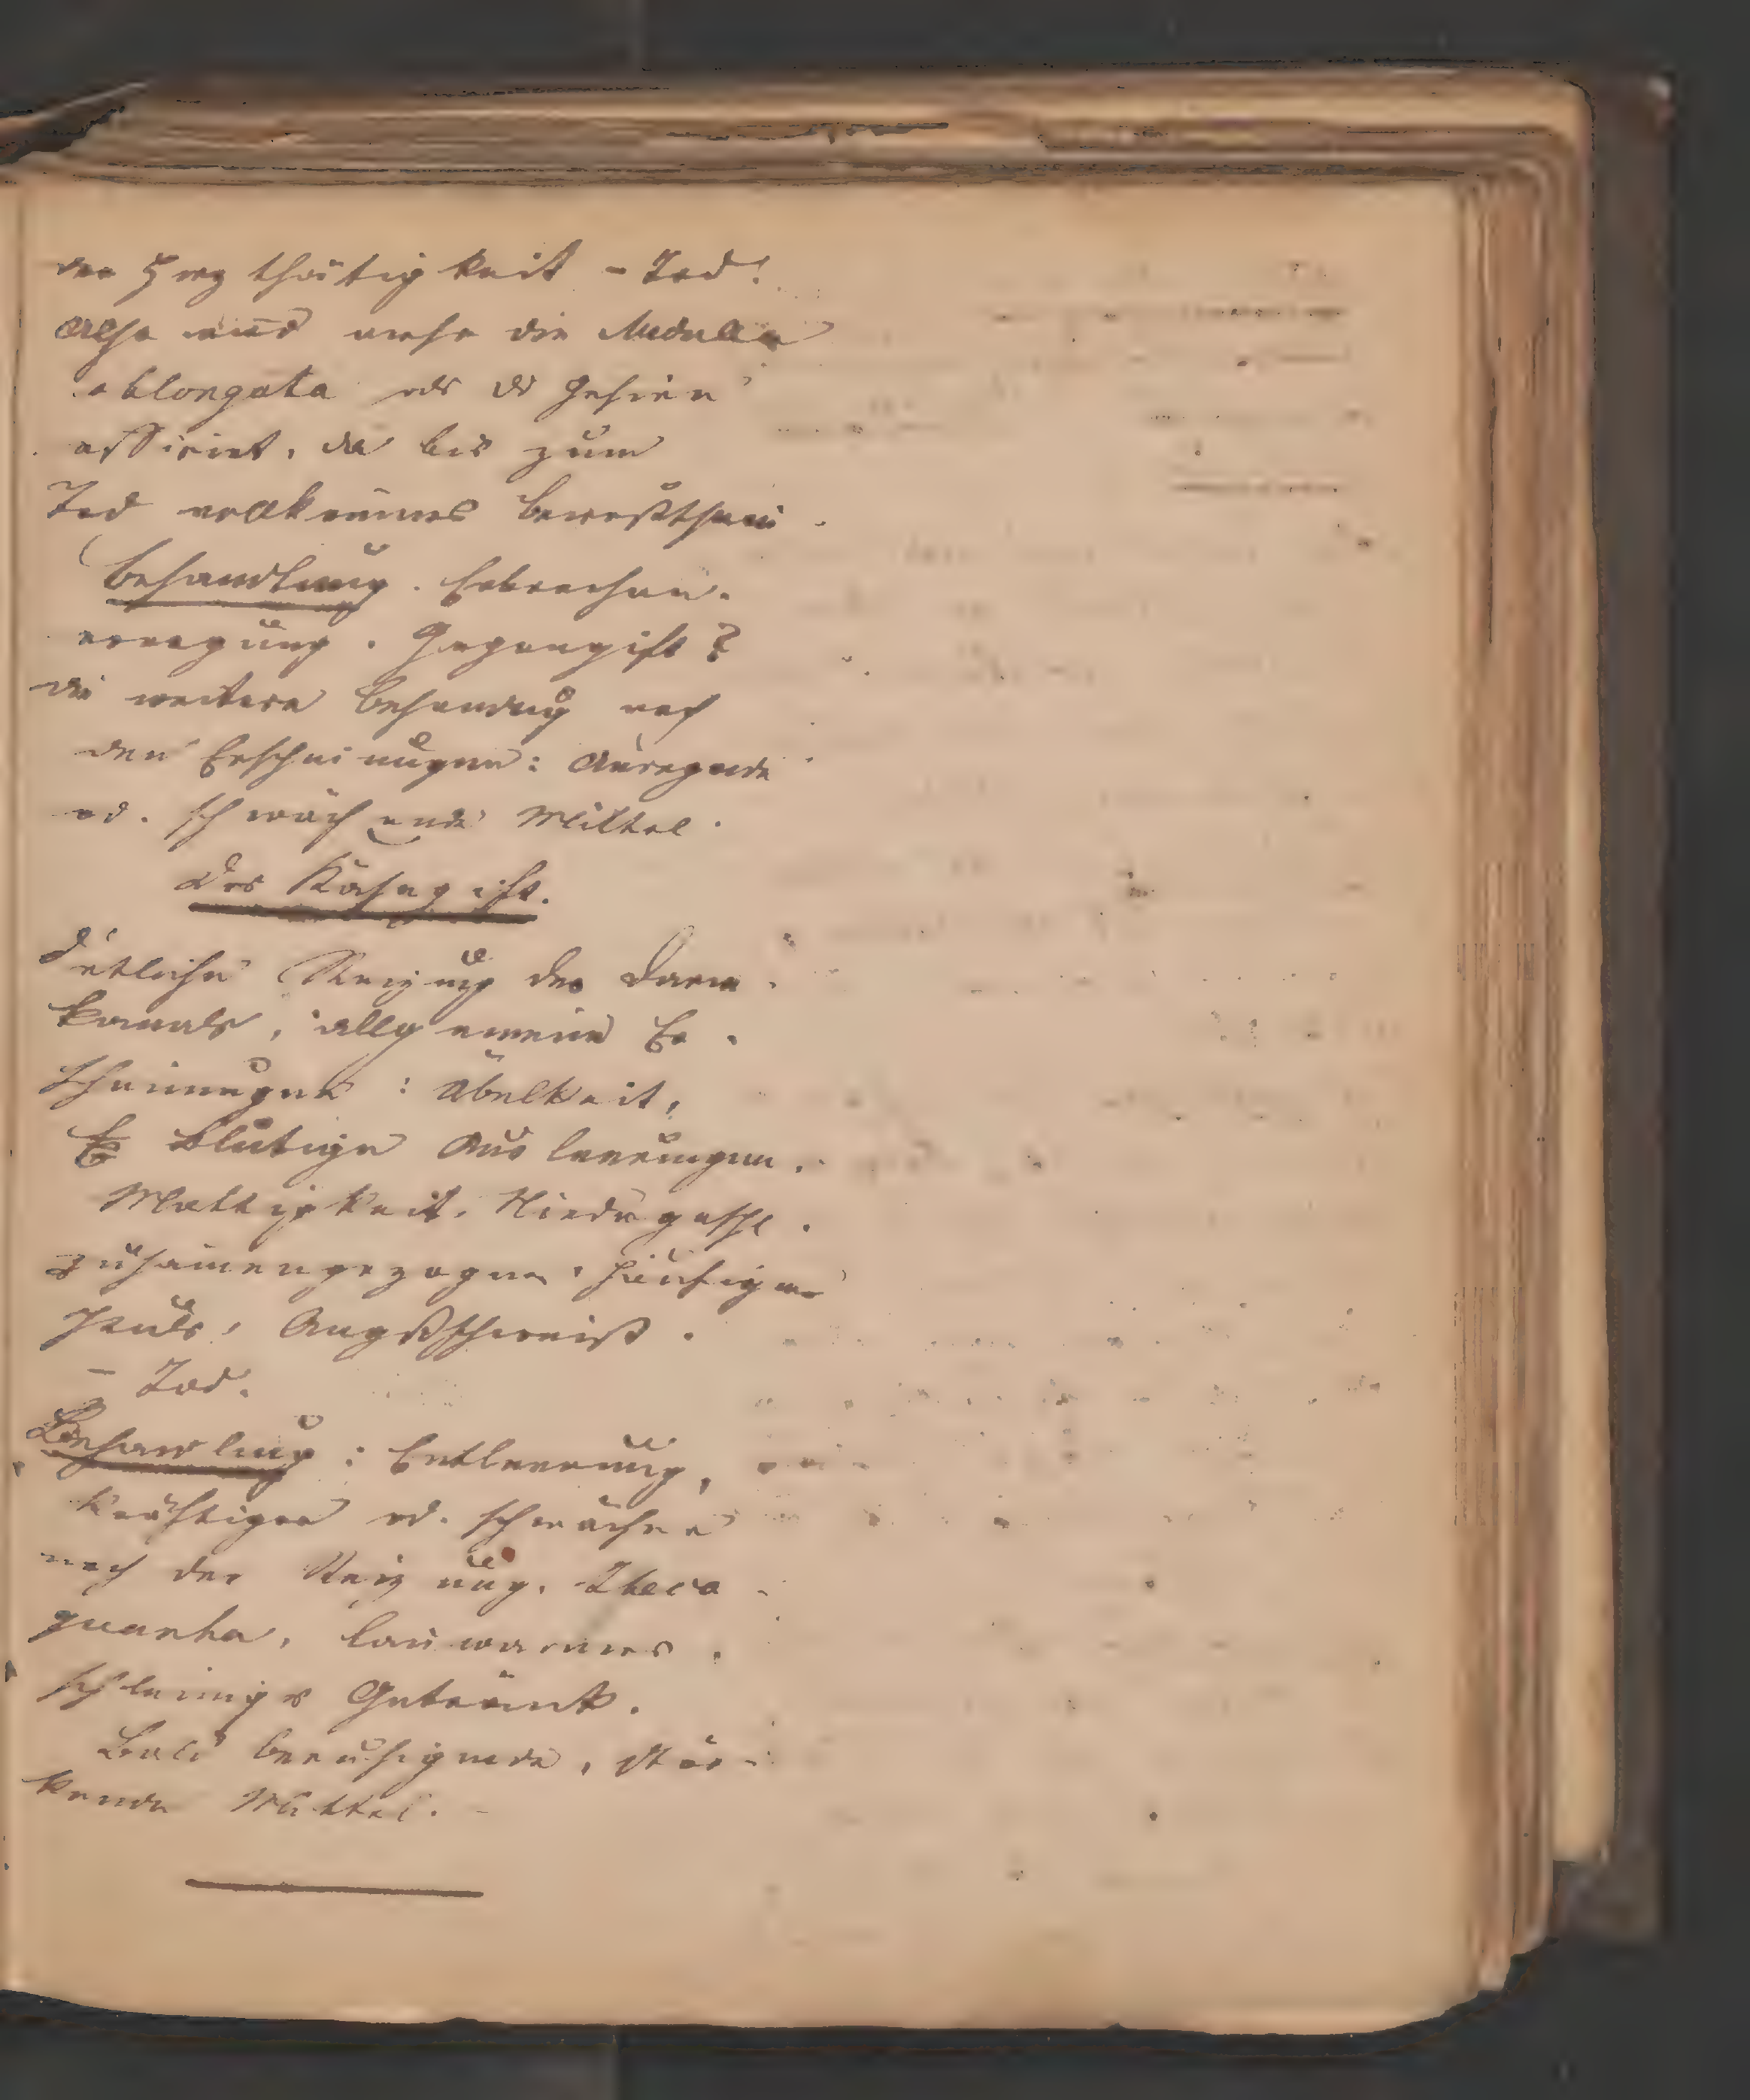 der Herzthätigkeit - Tod!
Also wird mehr die Medulla
oblongata als ds Gehirn
afficirt, da bis zum
Tod vollkomnes Bewußtsein
Behandlung. Erbrechen-
erregung. Gegengift?
die weitere Behandlug nach
den Erscheinungen: Anregende
od. schwächende Mittel.
Das Käsegift.
Örtliche Reizung des Darm-
kanals, allgemeine Er-
scheinungen: Übelkeit,
blutige Ausleerungen.
Mattigkeit, Niedergeschl.
zusamengezogener, häufiger
Puls,
- Tod.
Behandlung: Entleerung,
kräftiger od. schwächer
nach der Reizung. Ipeca-
quanha, lauwarmes,
schleimiges Getränk.
Bald beruhigende, stär-
kende Mittel. -